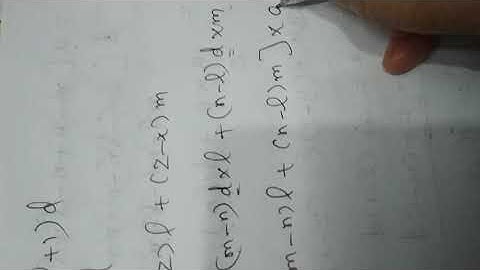 +1)d
z)l + (z-x)m
(m-n)dxl + (n-l)dxm
m-n)l + (n-l)m]xa